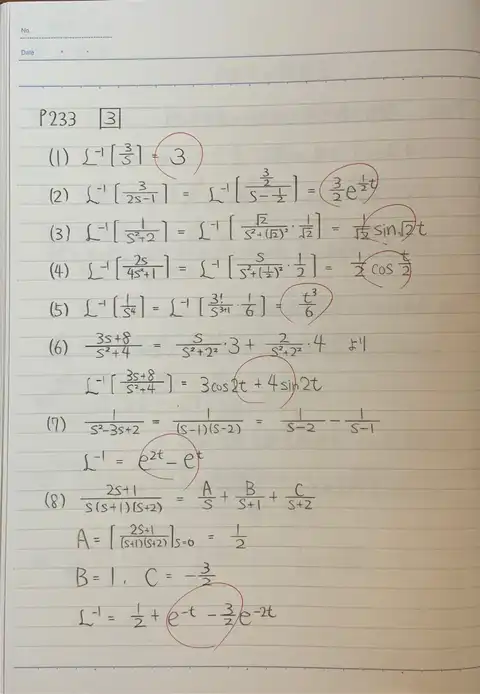 No.
Date
P233 [3]
(1) L⁻¹[3/s] = 3
(2) L⁻¹[3/(2s-1)] = L⁻¹[(3/2)/(s-1/2)] = 3/2 e^(1/2 t)
(3) L⁻¹[1/(s²+2)] = L⁻¹[√2/(s²+(√2)²)・1/√2] = 1/√2 sin√2t
(4) L⁻¹[2s/(4s²+1)] = L⁻¹[s/(s²+(1/2)²)・1/2] = 1/2 cos t/2
(5) L⁻¹[1/s⁴] = L⁻¹[3!/s³⁺¹・1/6] = t³/6
(6) (3s+8)/(s²+4) = s/(s²+2²)・3 + 2/(s²+2²)・4 より
L⁻¹[(3s+8)/(s²+4)] = 3cos2t + 4sin2t
(7) 1/(s²-3s+2) = 1/((s-1)(s-2)) = 1/(s-2) - 1/(s-1)
L⁻¹ = e^(2t) - e^t
(8) (2s+1)/(s(s+1)(s+2)) = A/s + B/(s+1) + C/(s+2)
A = [(2s+1)/((s+1)(s+2))]s=0 = 1/2
B = 1, C = -3/2
L⁻¹ = 1/2 + e^(-t) - 3/2 e^(-2t)